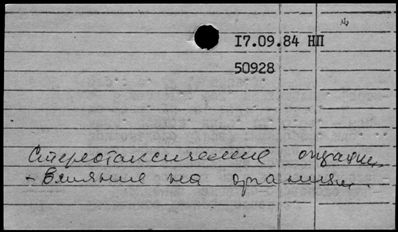 17.09.84 НП
50928
Стереотаксические операции
- влияние на организм.